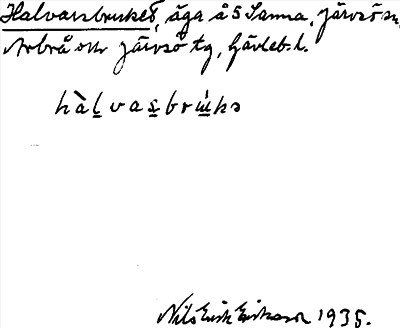 Halvarsbruket, äga å 5 Sanna, Järvsö sn,
Arbrå och Järvsö tg, Gävleb. l.
hàlvasbrùks
Nils Erik Eriksson 1935.